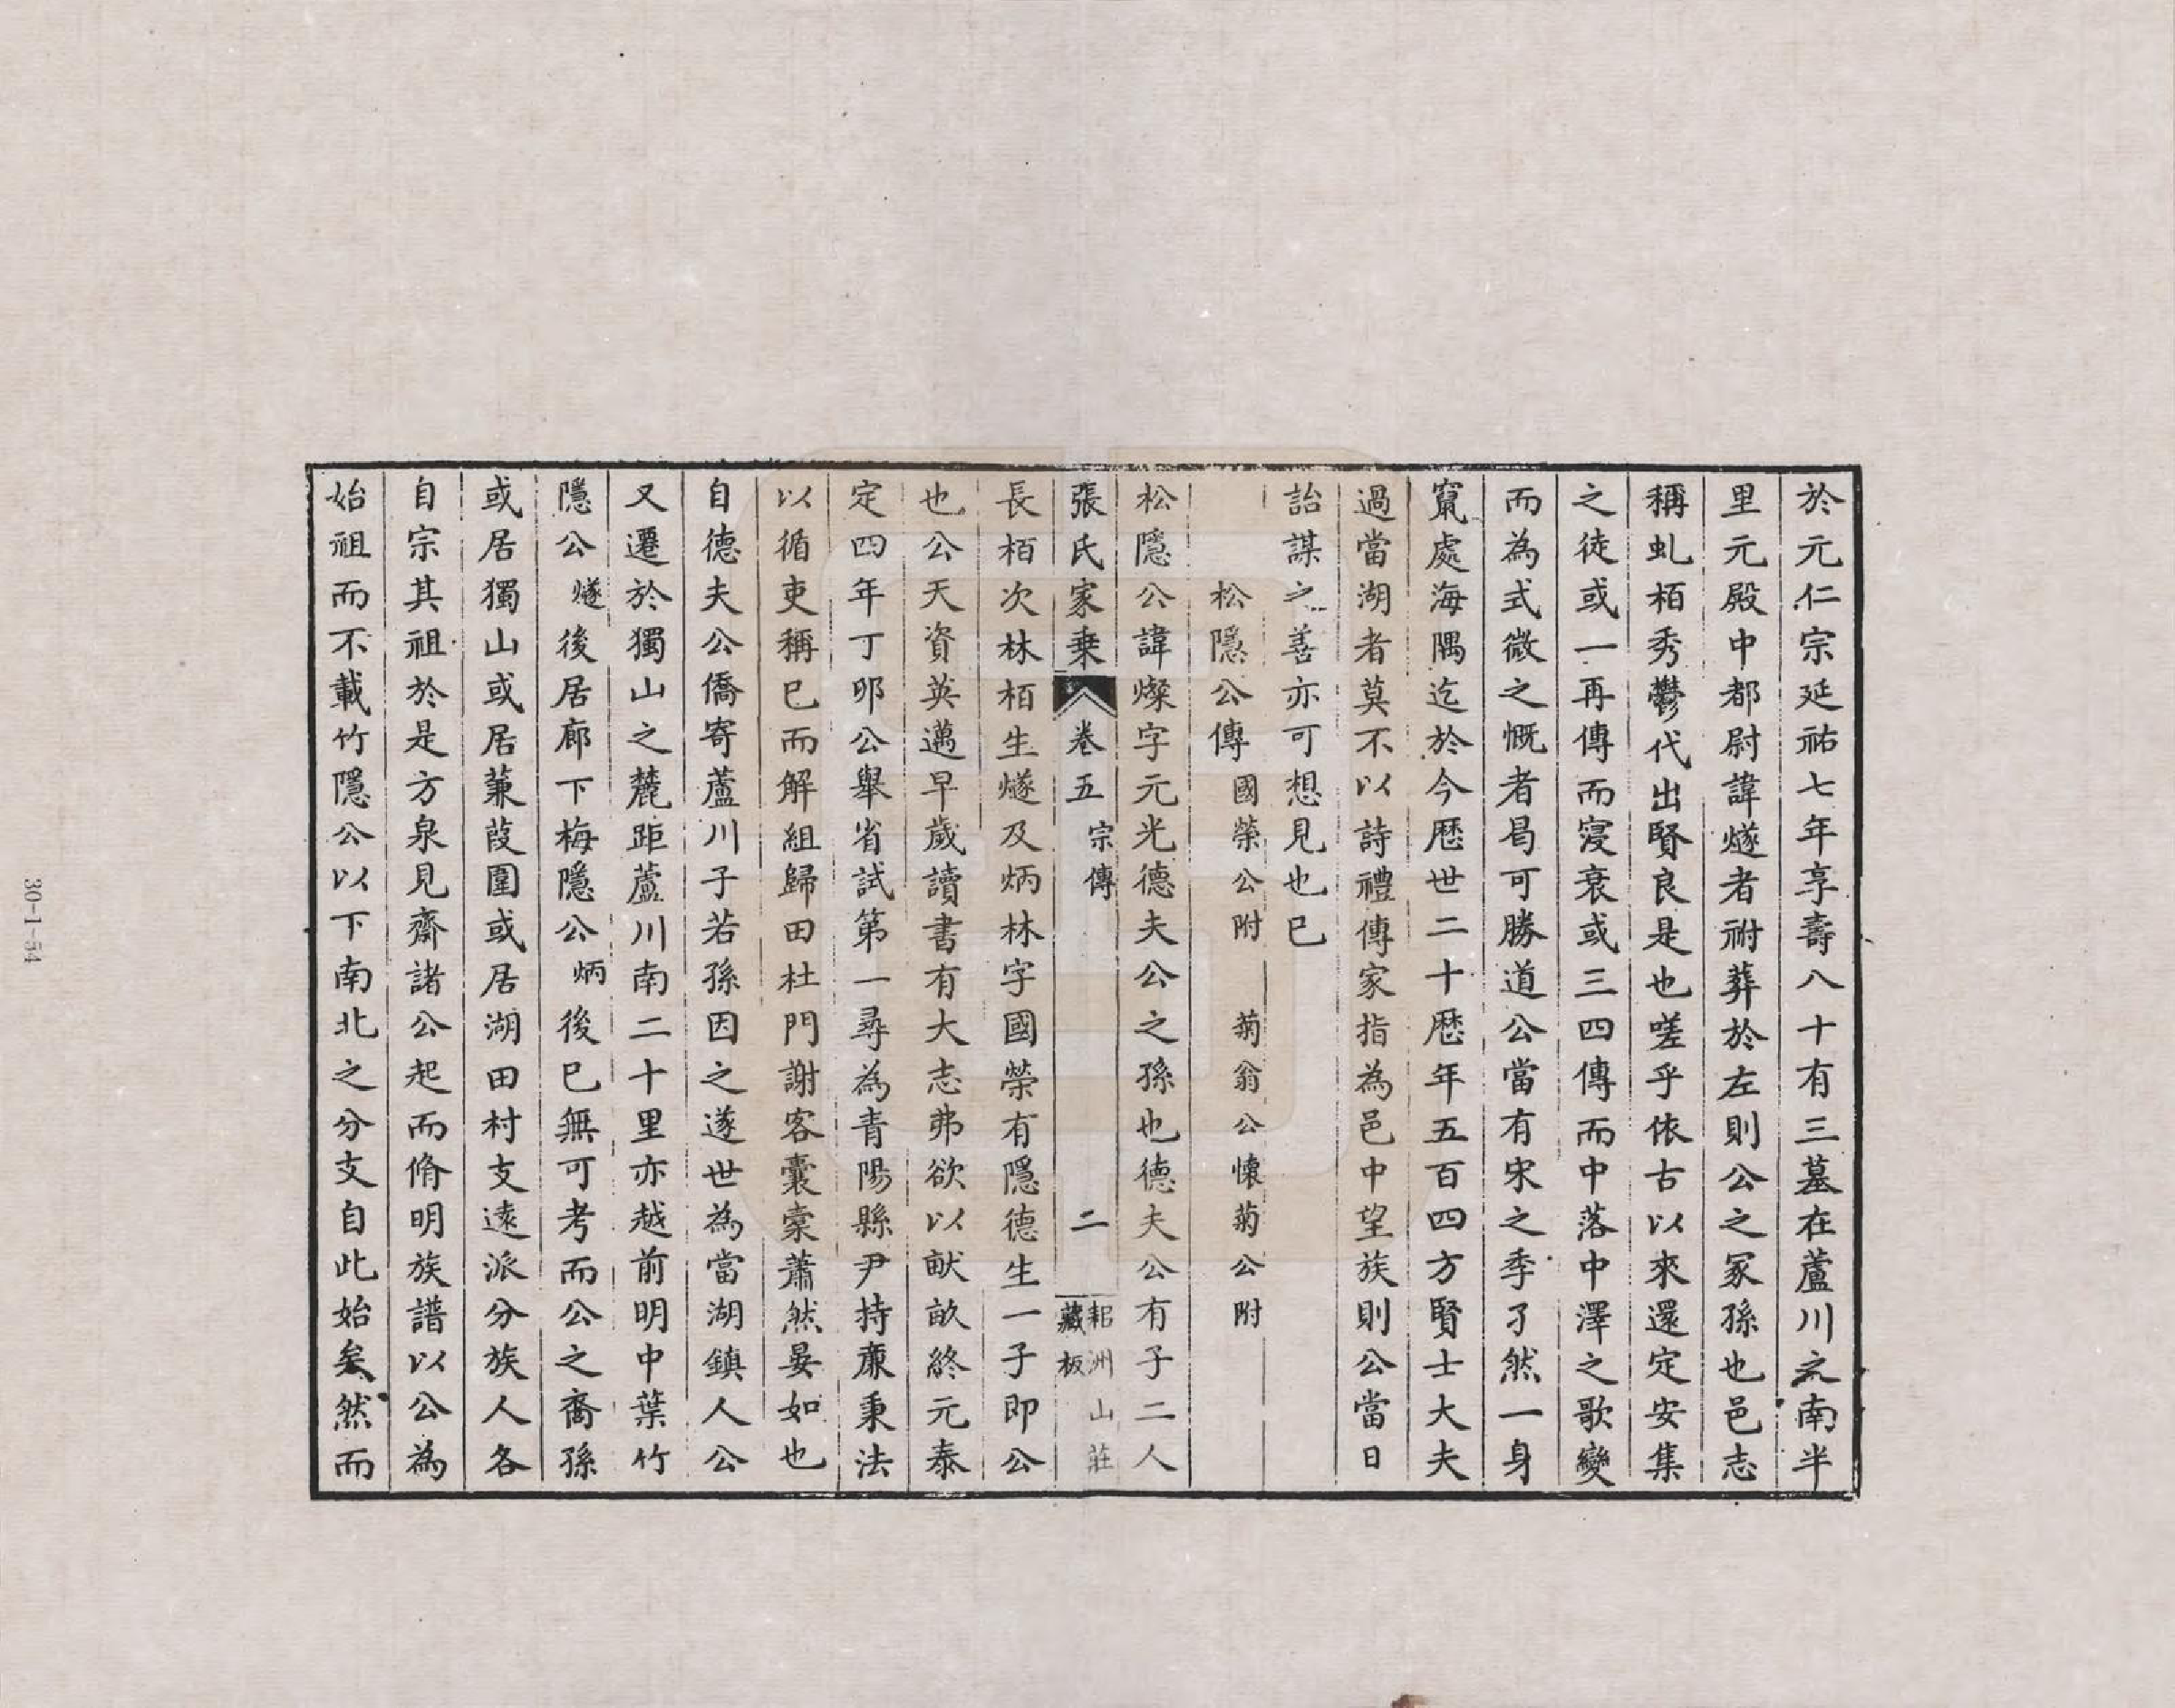 於元仁宗延祐七年享壽八十有三墓在蘆川之南半
里元殿中都尉諱燧者祔葬於左則公之冢孫也邑志
稱虬栢秀鬱代出賢良是也嗟乎依古以來還定安集
之徒或一再傳而寖衰或三四傳而中落中澤之歌變
而為式微之慨者曷可勝道公當有宋之季孑然一身
竄處海隅迄於今歷世二十歷年五百四方賢士大夫
過當湖者莫不以詩禮傳家指為邑中望族則公當日
詒謀之善亦可想見也已
松隱公傳 國榮公附 菊翁公懷菊公附
松隱公諱燦字元光德夫公之孫也德夫公有子二人
張氏家乘 卷五 宗傳 二 耜洲山莊藏板
長栢次林栢生燧及炳林字國榮有隱德生一子即公
也公天資英邁早歲讀書有大志弗欲以猷畝終元泰
定四年丁卯公舉省試第一尋為青陽縣尹持廉秉法
以循吏稱已而解組歸田杜門謝客囊橐蕭然晏如也
自德夫公僑寄蘆川子若孫因之遂世為當湖鎮人公
又遷於獨山之麓距蘆川南二十里亦越前明中葉竹
隱公燧後居廊下梅隱公炳後已無可考而公之裔孫
或居獨山或居蒹葭圍或居湖田村支遠派分族人各
自宗其祖於是方泉見齋諸公起而脩明族譜以公為
始祖而不載竹隱公以下南北之分支自此始矣然而
30-1-54